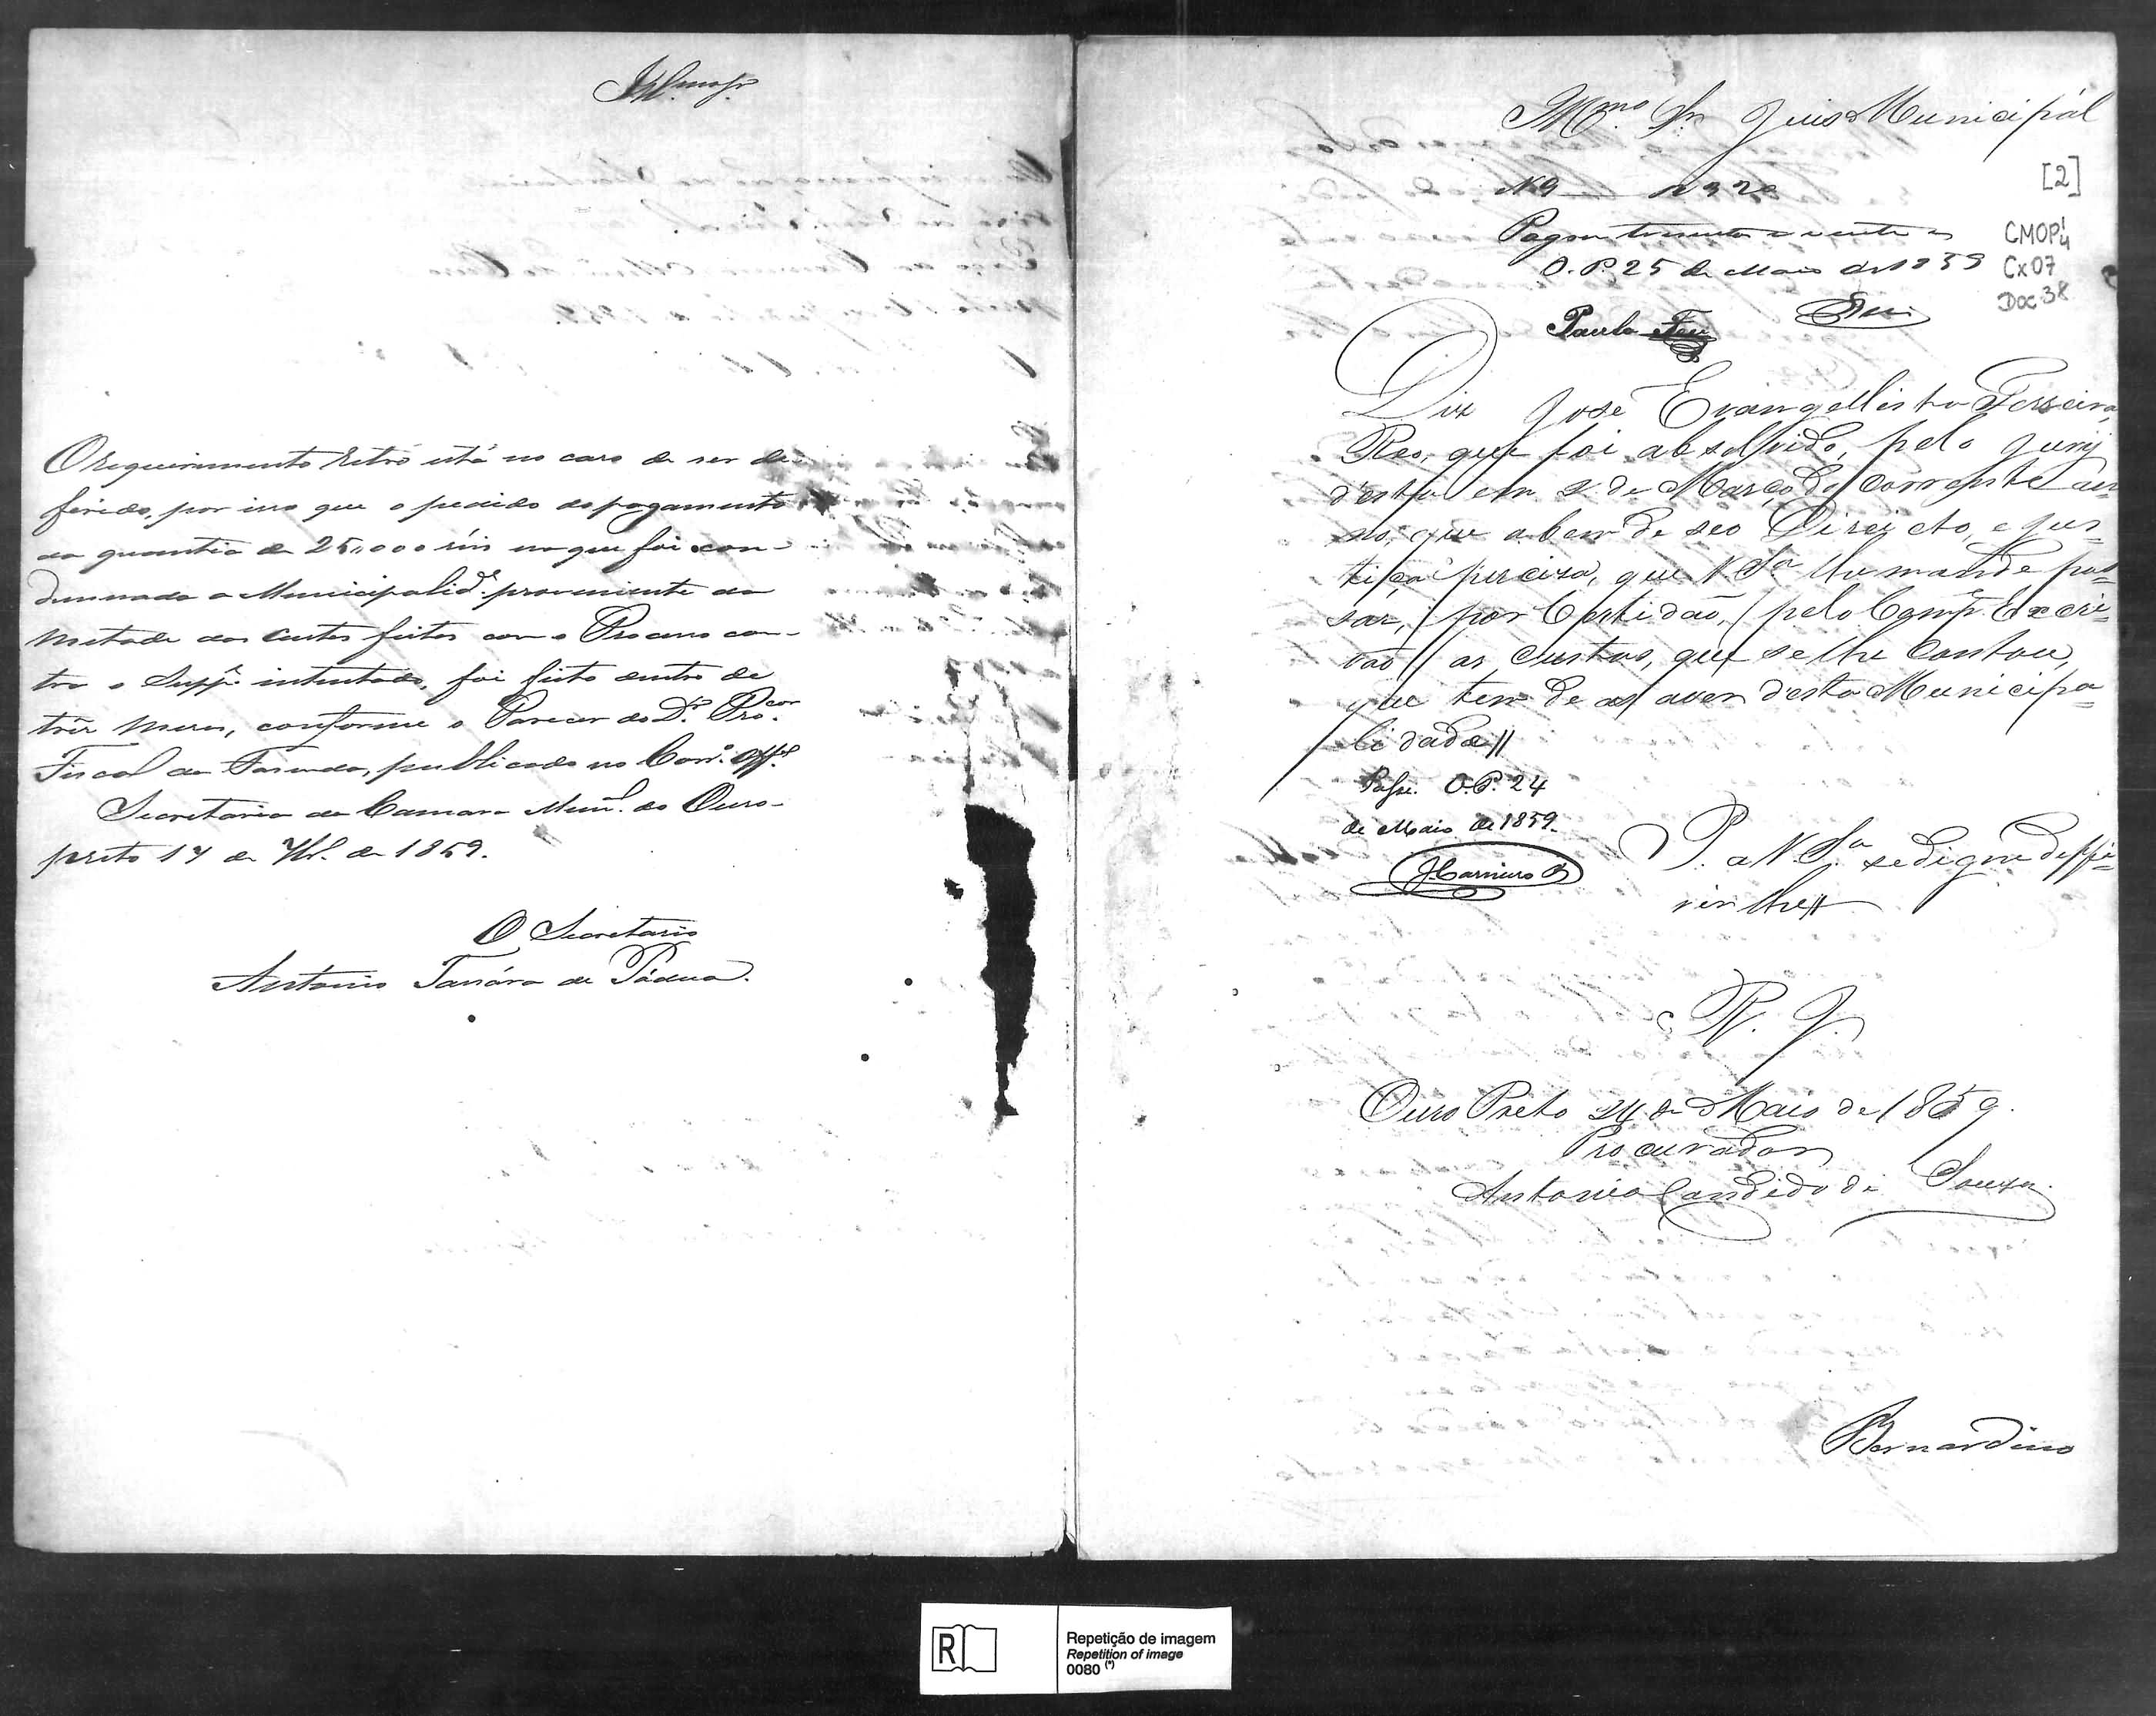 Ill.mo Sr.
O requerimento retro está no caso de ser de-
ferido, por isso que o pedido do pagamento
da quantia de 25,000 réis em que foi con-
demnada a Municipalid.e proveniente da
metade das custas feitas com o Processo con-
tra o Supp.e intentado, foi feito dentro de
trêz meses, conforme o Parecer do D.or Pro.cor
Fiscal da Fazenda, publicado no Corr.o Off.al
Secretaria da Camara Mun.l do Ouro-
preto 17 de de 1859.
O Secretario
Antonio de Pádua.
M.mo Sr. Juis Municipál
[2]
N 9 320
Pagou trezentos e vinte rs
O. P. 25 de Maio de 1859
CMOP 4
Cx 07
Doc 38
Paula
Diz José Evangellista Ferreira,
Reo, que foi absolvido, pelo Jury
d'esta em 2 de Março do corrente an-
no, que a bem de seo Direicto, e jus=
tiça perciza, que V. S.a lhe mande pas=
sar, por Certidão, pelo Comp.e Escri=
vão as custas, que se lhe Contou,
que tem de as aver d'esta Municipa=
lidade//
Passe. O. P. 24
de Maio de 1859.
J. Carneiro
P. a V. S.a se digne deffi=
rir lhe//
R. J.
Ouro Preto 24 de Maio de 1859.
Procurador
Antonio Candido de Souza.
Bernardino
R
Repetição de imagem
Repetition of image
0080 (*)